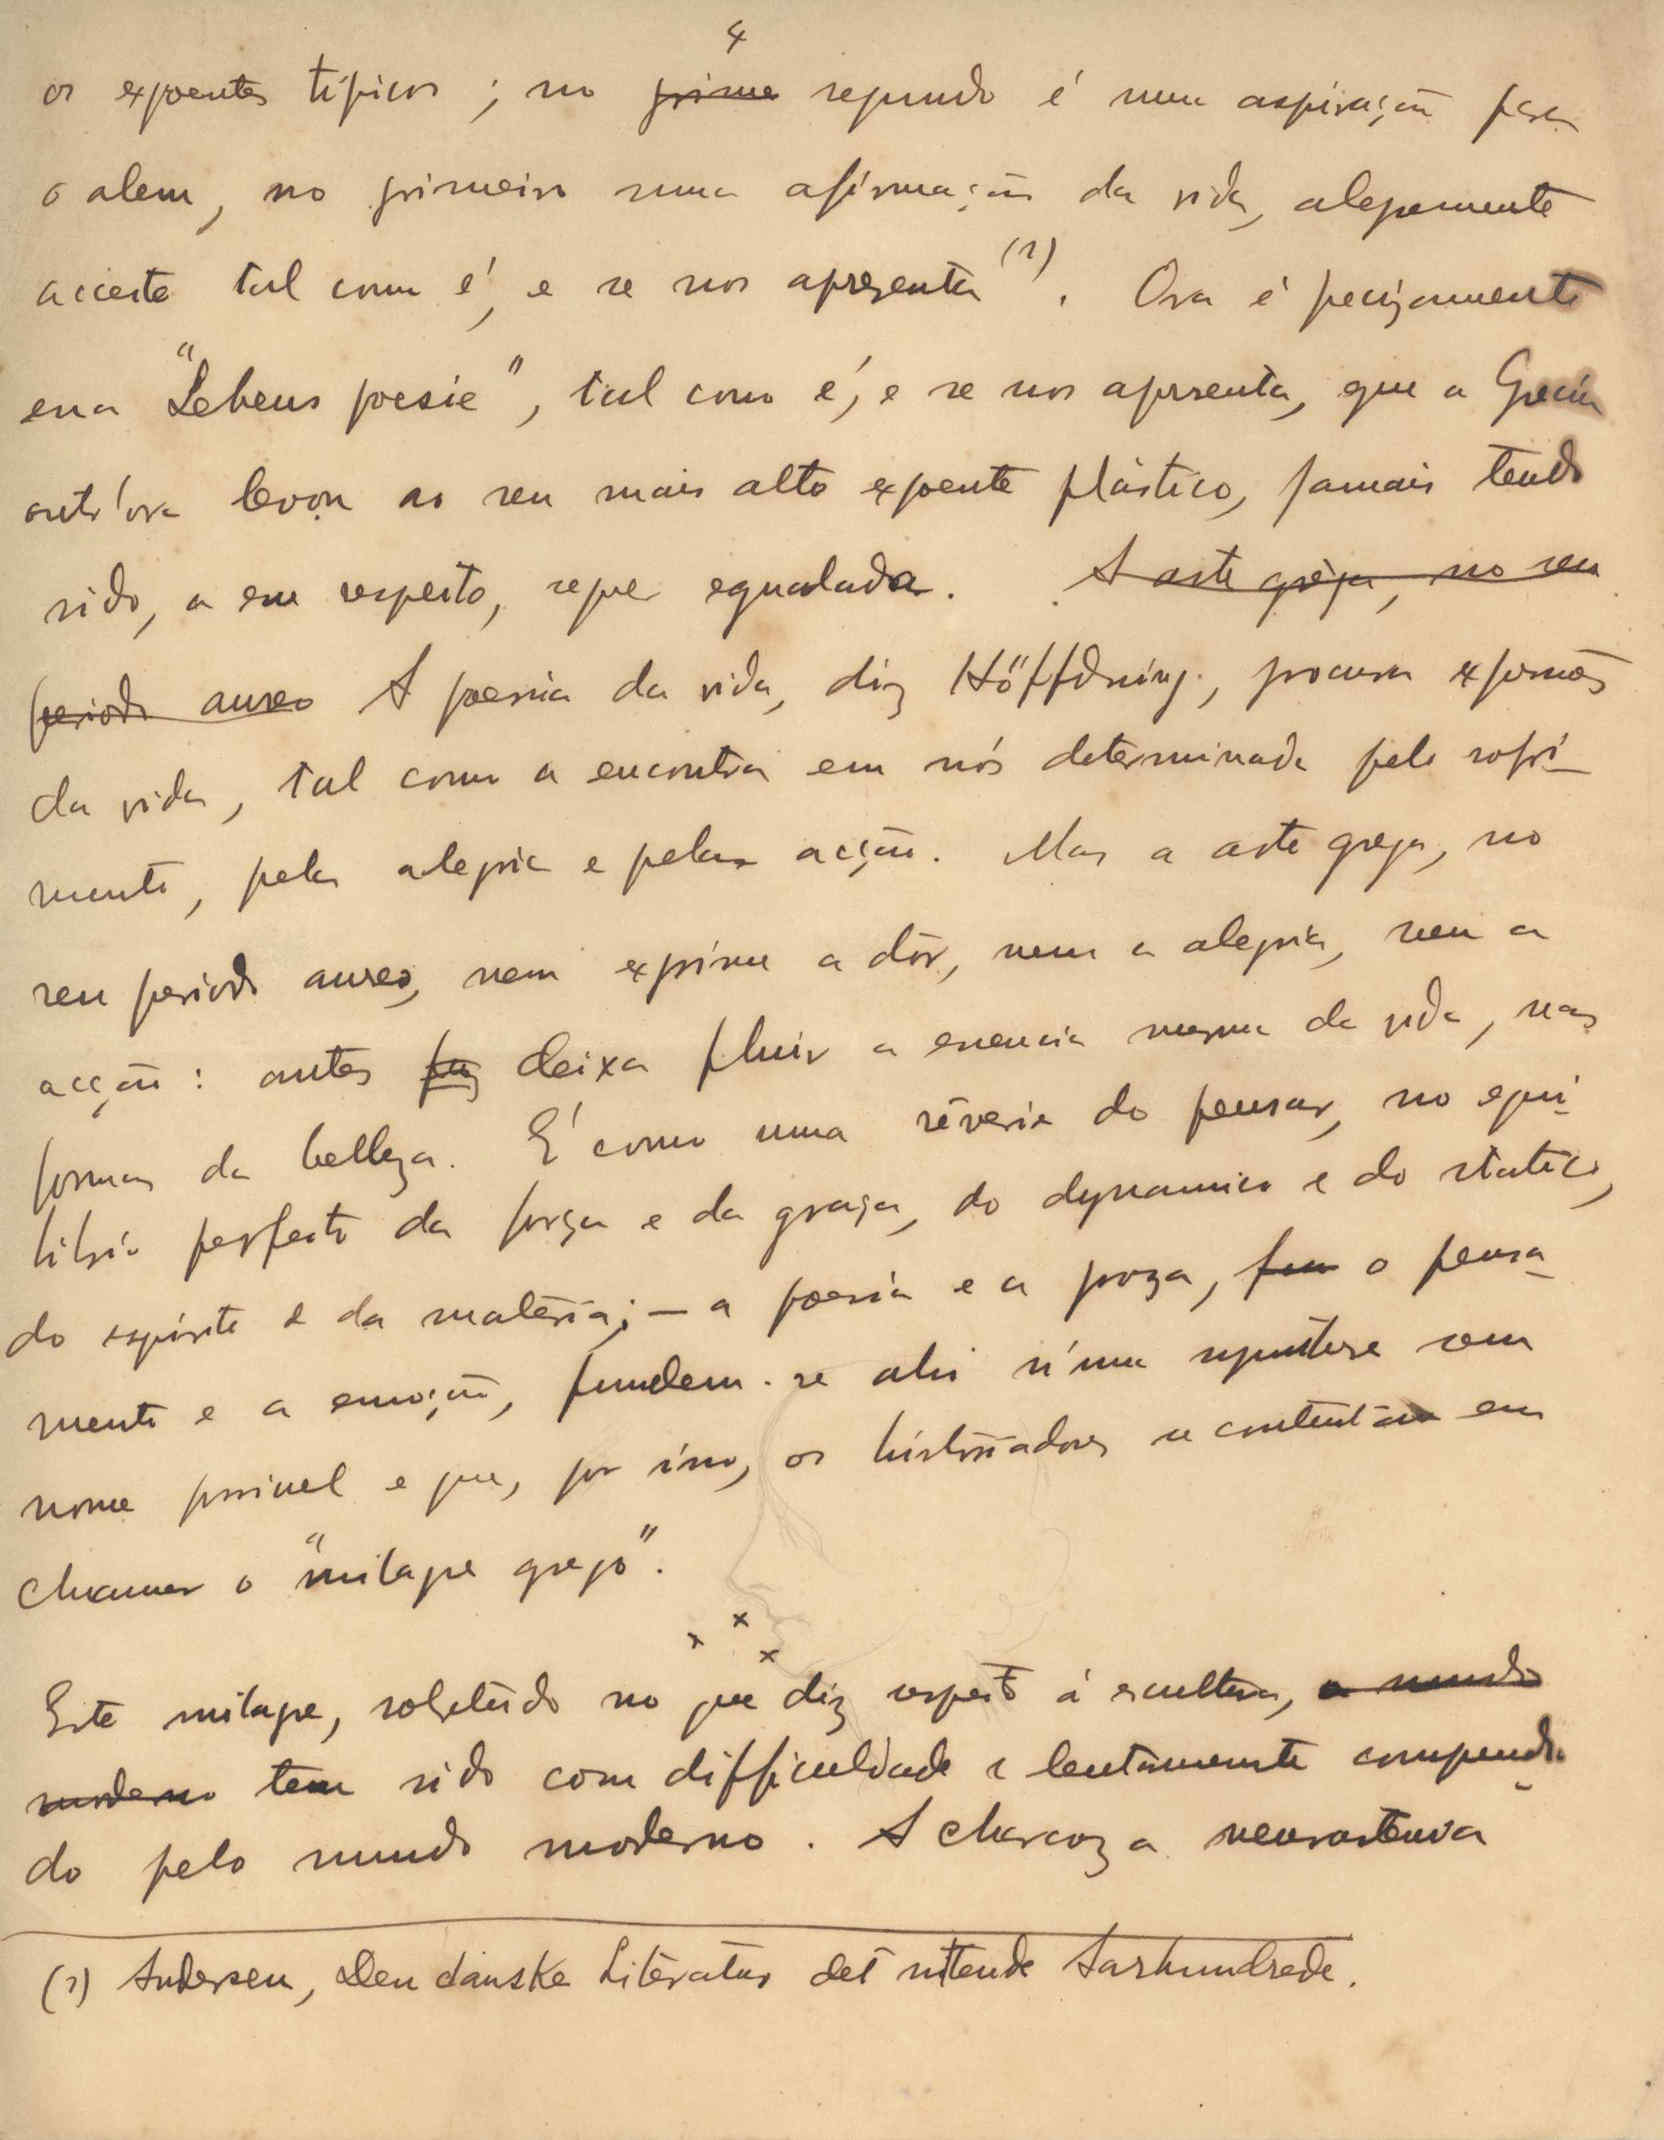 4
os expoentes tipicos ; no prime segundo é uma aspiração para
o alem, no primeiro uma afirmação da vida, alegremente
acceite tal como é, e se nos apresenta (1). Ora é precizamente
essa "Lebens poesie", tal como é, e se nos apresenta, que a Grecia
outr'ora levou ao seu mais alto expoente plástico, jamais tendo
sido, a esse respeito, sequer egualada. A arte grega, no seu
periodo aureo A poesia da vida, diz Höffdning, procura expressões
da vida, tal como a encontra em nós determinada pelo sofri-
mento, pela alegria e pela acção. Mas a arte grega, no
seu periodo aureo, nem exprime a dôr, nem a alegria, nem a
acção : antes faz deixa fluir a essencia mesma da vida, nas
formas da belleza. É como uma rêverie do pensar, no equi-
librio perfeito da força e da graça, do dynamico e do statico,
do espirito e da materia; — a poesia e a proza, o pensa-
mento e a emoção, fundem-se ahi n'uma synthese sem
nome possivel e que, por isso, os historiadores se contentam em
chamar o "milagre grego".
x x x
Este milagre, sobretudo no que diz respeito á escultura, o mundo
moderno tem sido com difficuldade e lentamente comprendi-
do pelo mundo moderno. A a neurastenia
(1) Andersen, Den danske Literatur det nittende Aarhundrede.